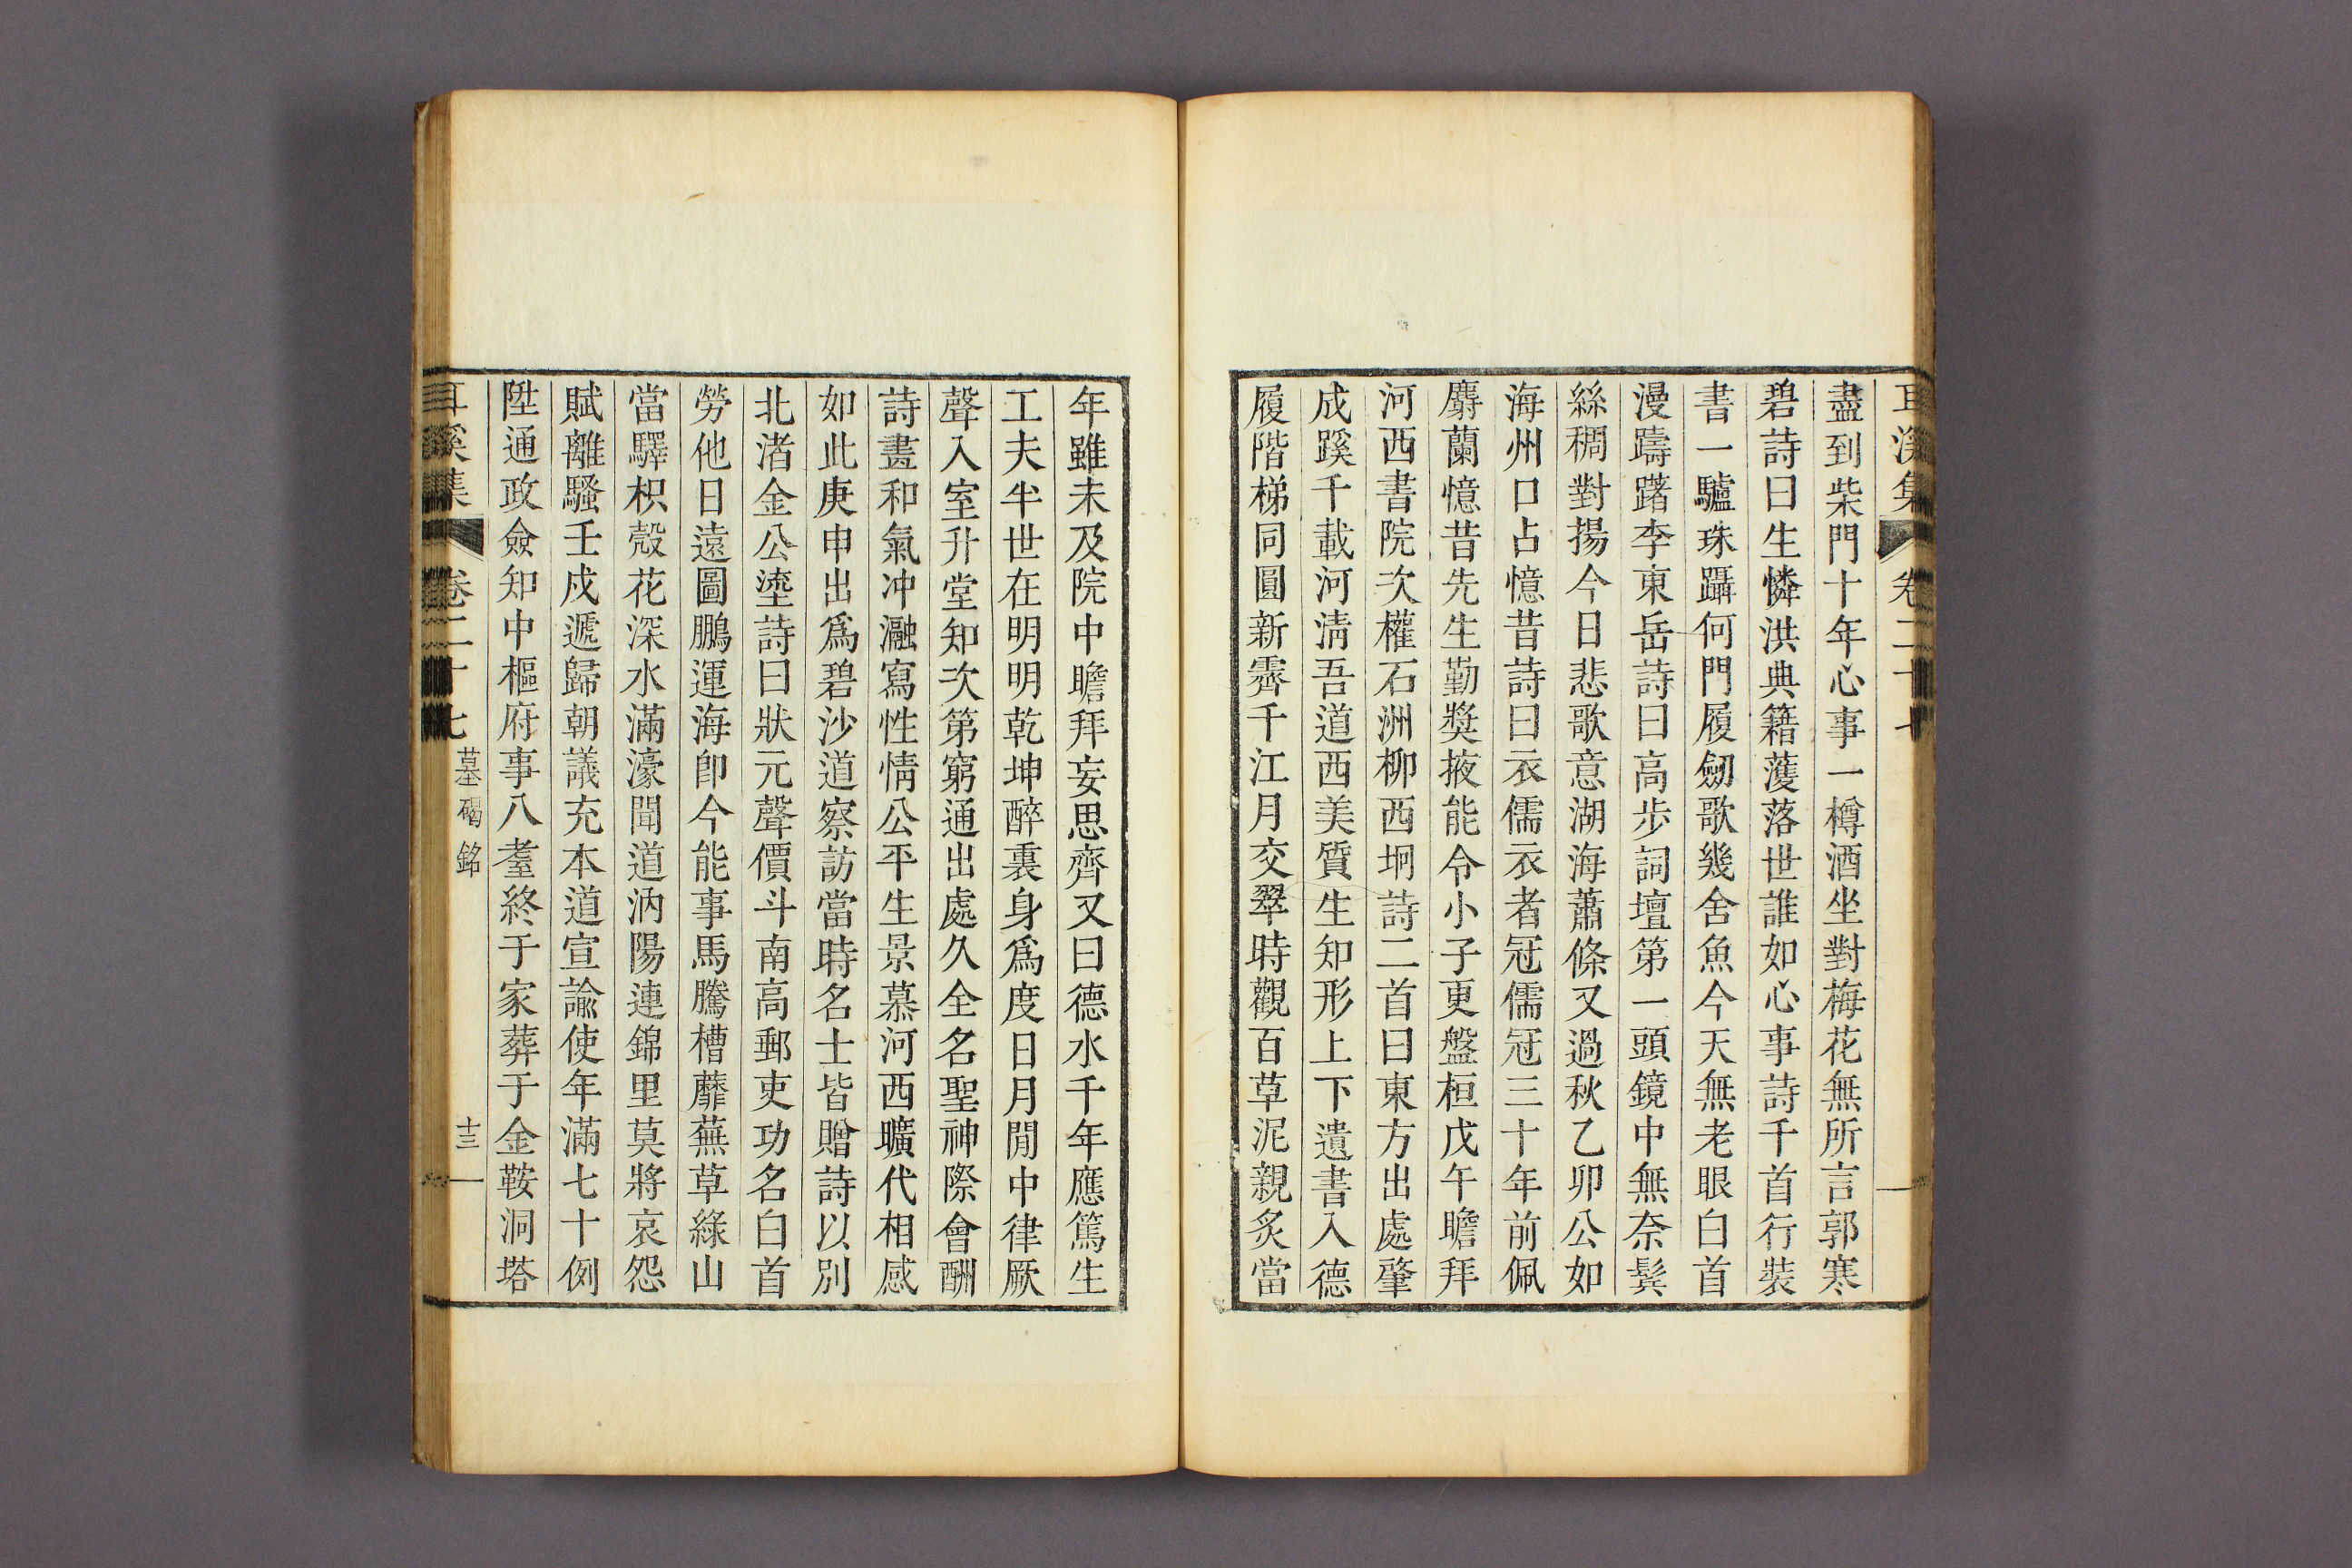 耳溪集 卷二十七
盡到柴門十年心事一樽酒坐對梅花無所言郭寒
碧詩曰生憐洪典籍濩落世誰如心事詩千首行裝
書一驢珠躡何門履劒歌幾舍魚今天無老眼白首
漫躊躇李東岳詩曰高步詞壇第一頭鏡中無奈鬂
絲稠對揚今日悲歌意湖海蕭條又過秋乙卯公如
海州口占憶昔詩曰衣儒衣者冠儒冠三十年前佩
麝蘭憶昔先生勤奬掖能令小子更盤桓戊午瞻拜
河西書院次權石洲柳西坰詩二首曰東方出處肇
成蹊千載河淸吾道西美質生知形上下遺書入德
履階梯同圓新霽千江月交翠時觀百草泥親炙當
年雖未及院中瞻拜妄思齊又曰德水千年應篤生
工夫半世在明明乾坤醉裏身爲度日月閒中律厥
聲入室升堂知次第窮通出處久全名聖神際會酬
詩晝和氣冲瀜寫性情公平生景慕河西曠代相感
如此庚申出爲碧沙道察訪當時名士皆贈詩以別
北渚金公瑬詩曰狀元聲價斗南高郵吏功名白首
勞他日遠圖鵬運海卽今能事馬騰槽蘼蕪草綠山
當驛枳殼花深水滿濠聞道汭陽連錦里莫將哀怨
賦離騷壬戍遞歸朝議充本道宣諭使年滿七十例
陞通政僉知中樞府事八耋終于家葬于金鞍洞塔
耳溪集 卷二十七 墓碣銘 十三